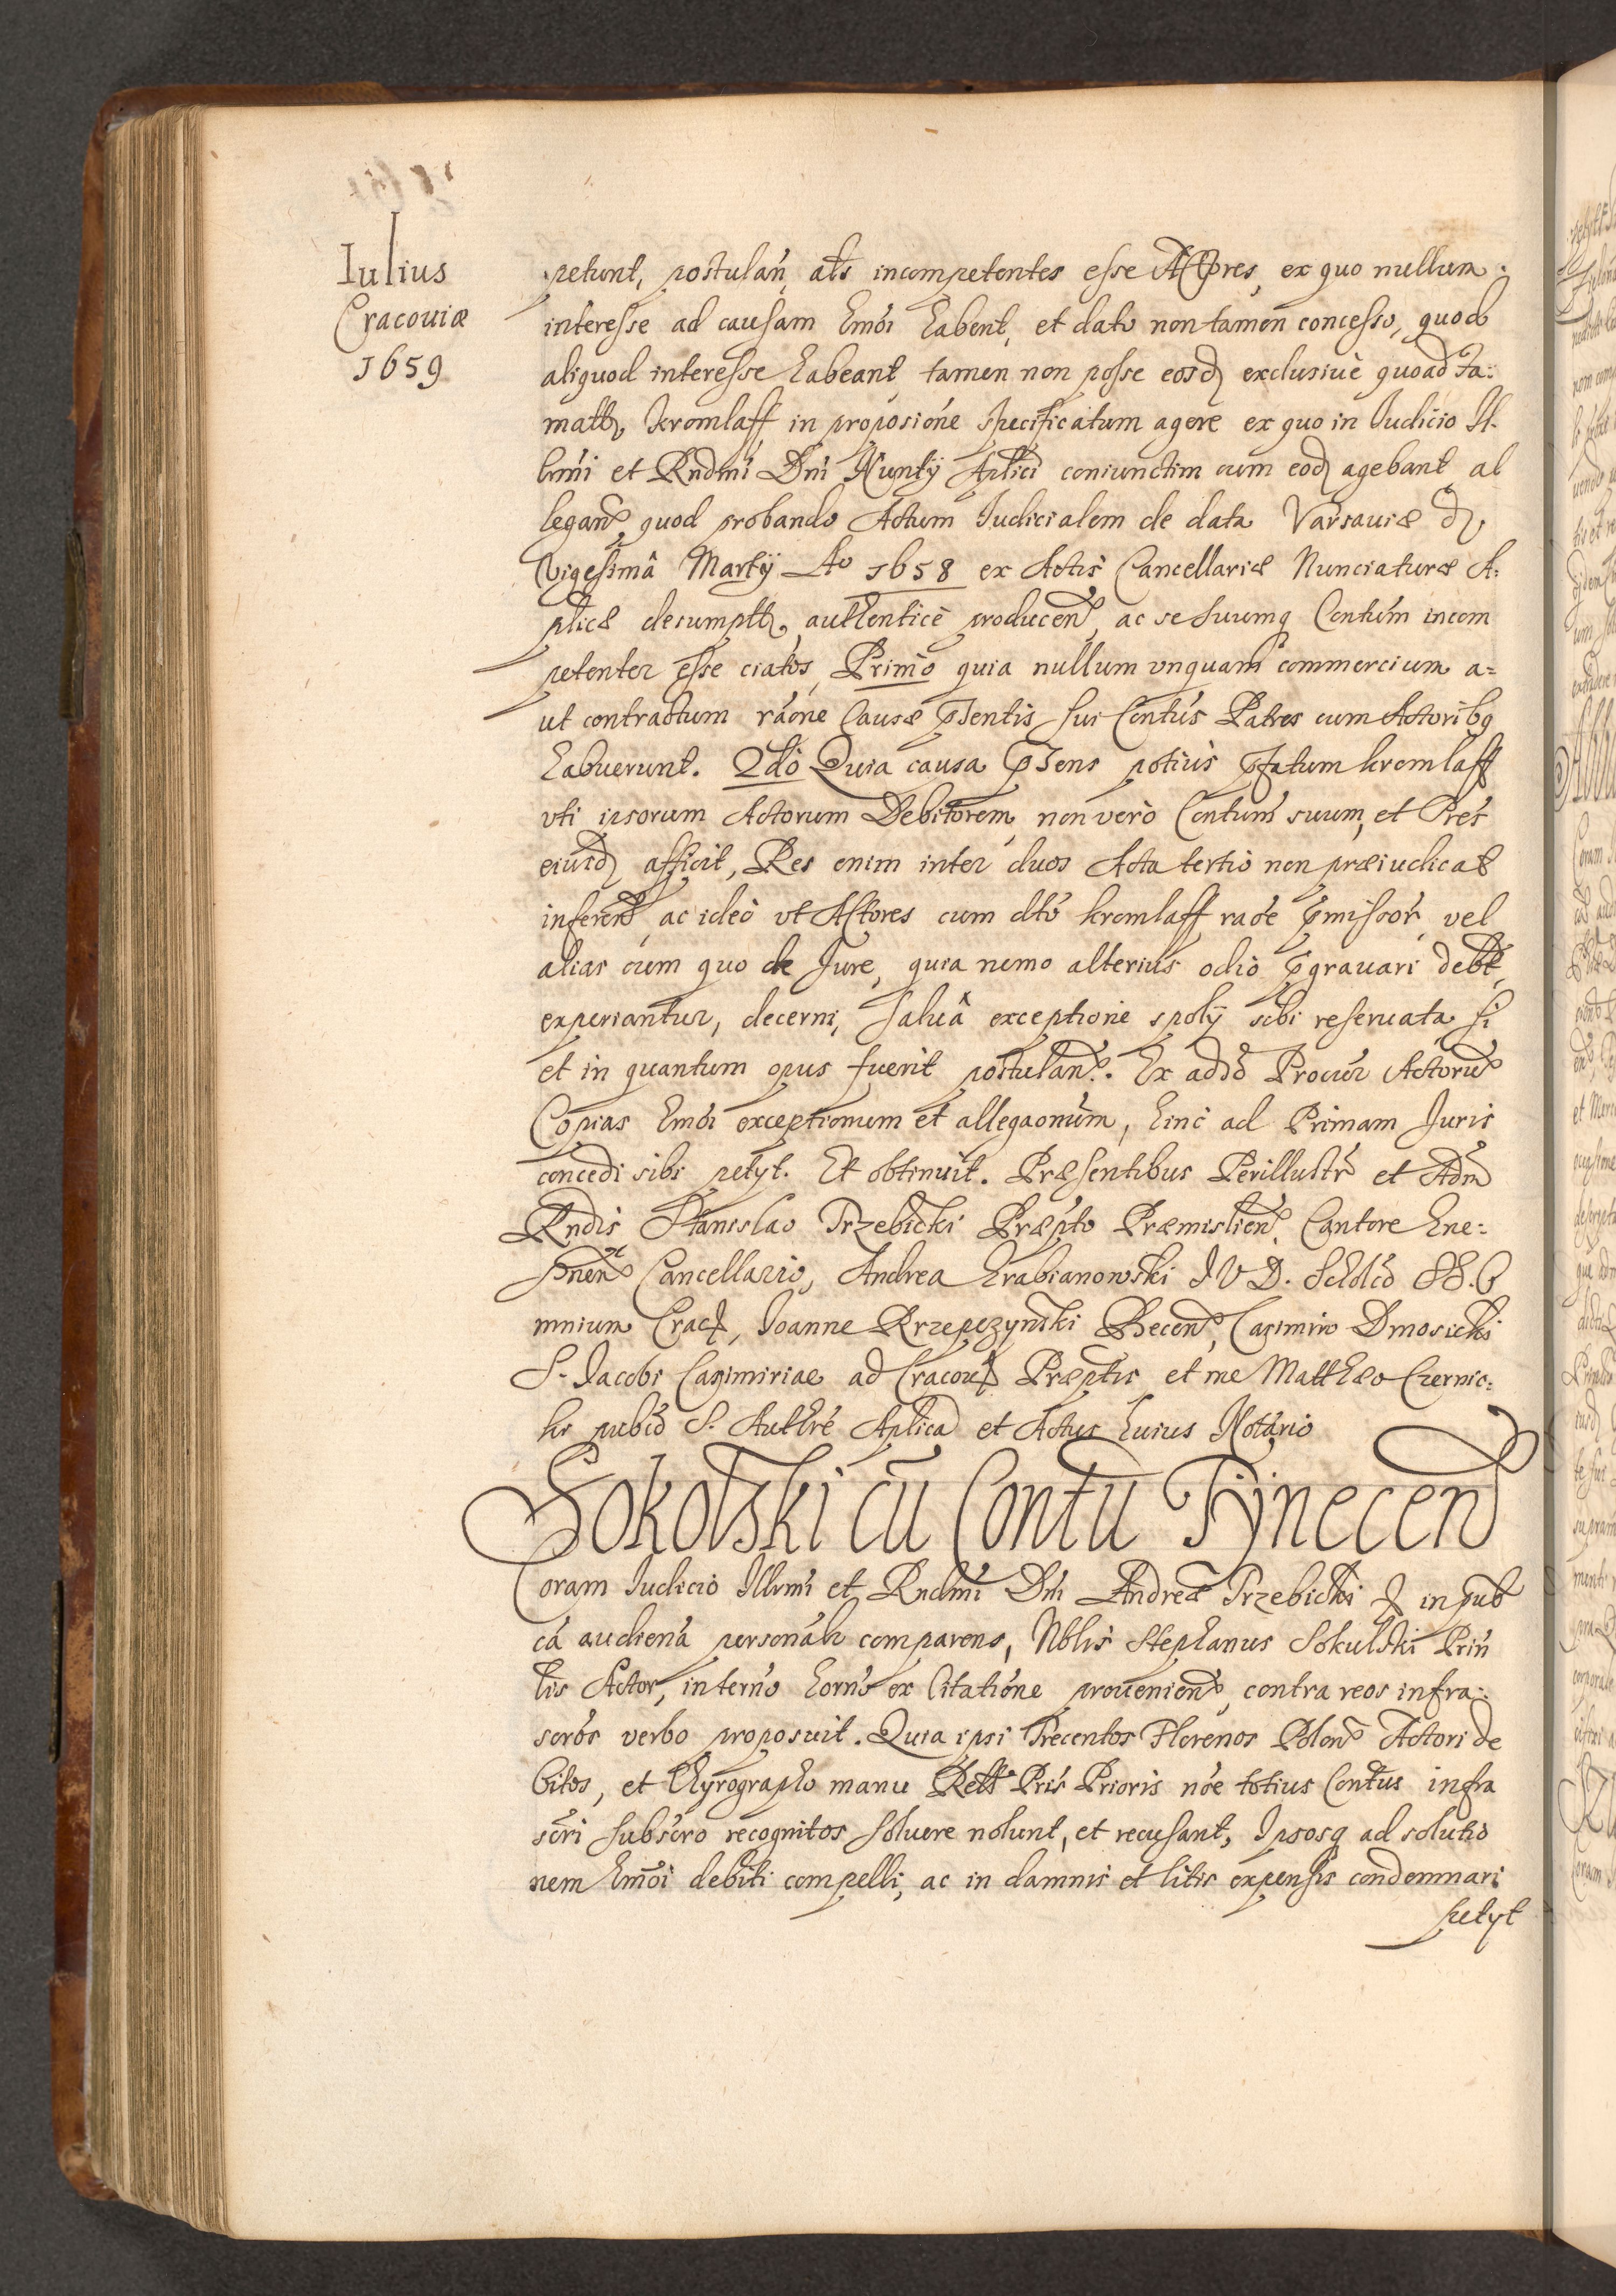 Iulius
Cracouiæ
1659
petunt, postulań, ałs incompetentes esse Actores, ex quo nullum
interesse ad causam hmōi habent, et dato non tamen concesso, quod
aliquod interesse habeant tamen non posse eosd. exclusiuè quoad fa:
matt. Kromlaff in proposióne specificatum agere ex quo in Iudicio Il-
lmi et Rndmi Dni Nuntÿ Aplici coniunctim cum eod. agebant al
legan̄, quod probando Actum Iudicialem de data Varsauiæ d.
Vigesimâ Martÿ Ao 1658 ex Actis Cancellariæ Nunciaturæ A:
plicæ desumptt., authenticè producen̄, ac se suumq Contum incom
petenter esse ciatos, Primò quia nullum vnquam commercium a=
ut contractum rāone Causæ p̄sentis sui Contūs Patres cum Actoribq
habuerunt. 2dò Quia causa p̄sens potiùs p̄fatum Kromlaff
vti ipsorum Actorum Debitorem, non verò Contum suum, et Pres
eiusd. afficit, Res enim inter duos Acta tertio non præiudicat
inferen̄, ac ideò vt Actores cum dto Kromlaff raōe p̄missor, vel
alias cum quo de Jure, quia nemo alterius odio p̄grauari debt,
experiantur, decerni, saluâ exceptione spolÿ sibi reseruata si
et in quantum opus fuerit postulan̄. Ex adō Procur Actorū
Copias hmōi exceptionum et allegaonum, hinc ad Primam Juris
concedi sibi petyt. Et obtinuit. Præsentibus Perillustr̄ et Adm̄
Rndis Stanislao Trzebicki Præpto Præmislien̄. Cantore Gne:
snen̄ Cancellario, Andrea Grabianowski J V D. Scholco SS. O
mnium Crac., Joanne Krzepczyński Becen̄, Casimiro Dmosicki
S. Jacobi Casimiriae ad Cracou. Præptis et me Matthæo Czernic:
ki pubco S. Authrē Aplica et Actus huius Notario
Sokolski cū Contū Tÿnecen̄
Coram Iudicio Illrmi et Rndmi Dni Andreæ Trzebicki in pub
ca audiena personalr comparens, Nblis Stephanus Sokulski Prin
lis Actor, in termo horno ex Citatióne prouenien̄, contra reos infra:
scros verbo proposuit. Quia ipsi Trecentos Florenos Polon̄ Actori de
bitos, et Chyrographo manu Rett Pris Prioris nōe totius Contus infra
scri subscro recognitos soluere nolunt, et recusant, Ipsosq ad solutio
nem hmōi debiti compelli, ac in damnis et litis expensis condemnari
petyt